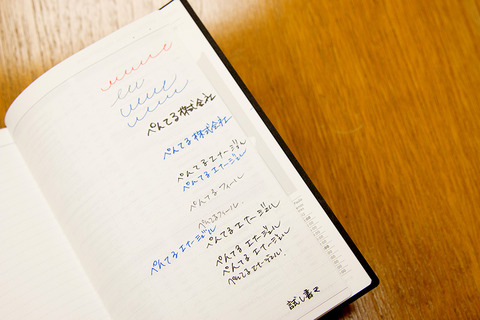 ぺんてる株式会社
ぺんてる株式会社
ぺんてる エナージェル
ぺんてる エナージェル
ぺんてる フィール
ぺんてるフィール
ぺんてる エナージェル
ぺんてる エナージェル
ぺんてる エナージェル
ぺんてる エナージェル
ぺんてる エナージェル!
試し書き